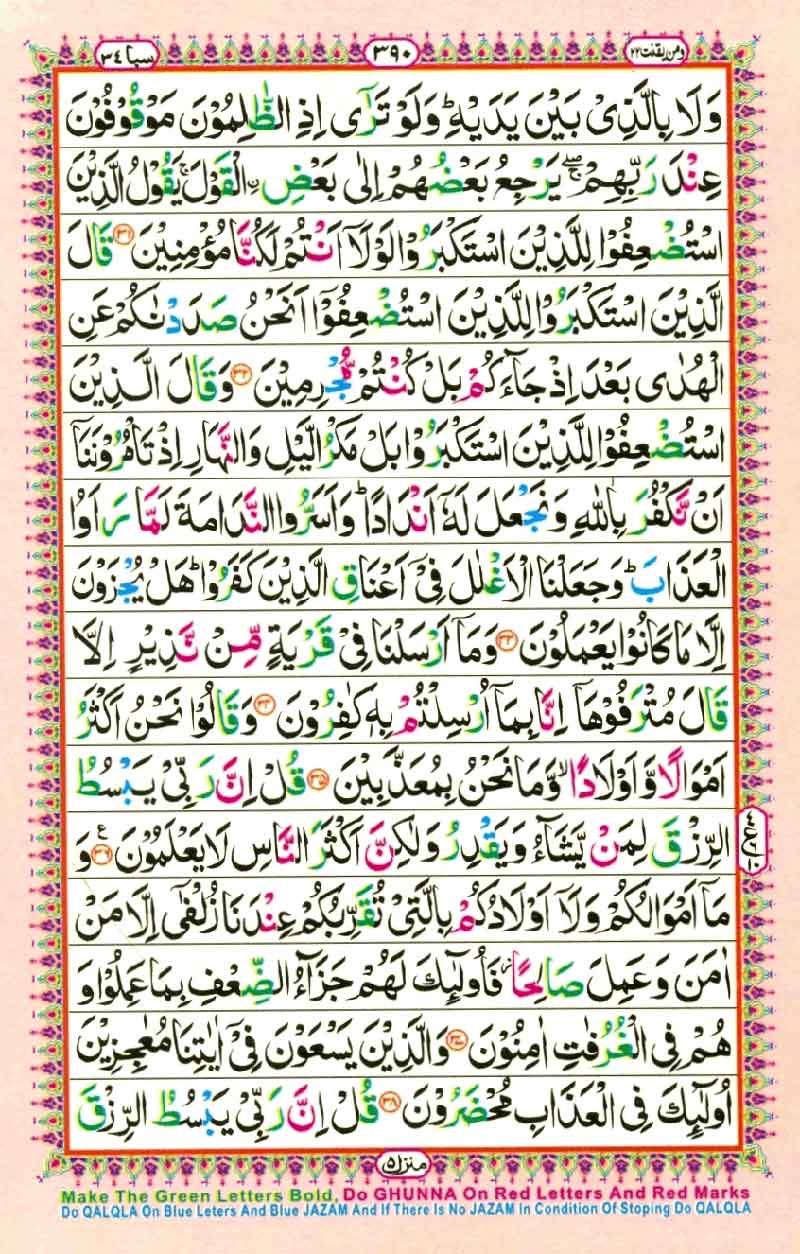 سبا ٣٤
٣٩٠
ومن يقنت ٢٢
وَلَا بِالَّذِىْ بَيْنَ يَدَيْهِ ؕ وَلَوْ تَرٰٓى اِذِ الظّٰلِمُوْنَ مَوْقُوْفُوْنَ
عِنْدَ رَبِّهِمْ ۖۚ يَرْجِعُ بَعْضُهُمْ اِلٰى بَعْضِ ࣙالْقَوْلَ ۚ يَقُوْلُ الَّذِيْنَ
اسْتُضْعِفُوْا لِلَّذِيْنَ اسْتَكْبَرُوْا لَوْلَاۤ اَنْتُمْ لَكُنَّا مُؤْمِنِيْنَ ۝۳۱ قَالَ
الَّذِيْنَ اسْتَكْبَرُوْا لِلَّذِيْنَ اسْتُضْعِفُوْۤا اَنَحْنُ صَدَدْنٰكُمْ عَنِ
الْهُدٰى بَعْدَ اِذْ جَآءَكُمْ بَلْ كُنْتُمْ مُّجْرِمِيْنَ ۝۳۲ وَقَالَ الَّذِيْنَ
اسْتُضْعِفُوْا لِلَّذِيْنَ اسْتَكْبَرُوْا بَلْ مَكْرُ الَّيْلِ وَالنَّهَارِ اِذْ تَاْمُرُوْنَنَاۤ
اَنْ نَّكْفُرَ بِاللّٰهِ وَنَجْعَلَ لَهٗۤ اَنْدَادًا ؕ وَاَسَرُّوا النَّدَامَةَ لَمَّا رَاَوُا
الْعَذَابَ ؕ وَجَعَلْنَا الْاَغْلٰلَ فِىْۤ اَعْنَاقِ الَّذِيْنَ كَفَرُوْا ؕ هَلْ يُجْزَوْنَ
اِلَّا مَا كَانُوْا يَعْمَلُوْنَ ۝۳۳ وَمَاۤ اَرْسَلْنَا فِىْ قَرْيَةٍ مِّنْ نَّذِيْرٍ اِلَّا
قَالَ مُتْرَفُوْهَاۤ اِنَّا بِمَاۤ اُرْسِلْتُمْ بِهٖ كٰفِرُوْنَ ۝۳۴ وَقَالُوْا نَحْنُ اَكْثَرُ
اَمْوَالًا وَّاَوْلَادًا ۙ وَّمَا نَحْنُ بِمُعَذَّبِيْنَ ۝۳۵ قُلْ اِنَّ رَبِّىْ يَبْسُطُ
الرِّزْقَ لِمَنْ يَّشَآءُ وَيَقْدِرُ وَلٰكِنَّ اَكْثَرَ النَّاسِ لَا يَعْلَمُوْنَ ۝۳۶ ع وَ
مَاۤ اَمْوَالُكُمْ وَلَاۤ اَوْلَادُكُمْ بِالَّتِىْ تُقَرِّبُكُمْ عِنْدَنَا زُلْفٰٓى اِلَّا مَنْ
اٰمَنَ وَعَمِلَ صَالِحًا ؗ فَاُولٰٓئِكَ لَهُمْ جَزَآءُ الضِّعْفِ بِمَا عَمِلُوْا وَ
هُمْ فِى الْغُرُفٰتِ اٰمِنُوْنَ ۝۳۷ وَالَّذِيْنَ يَسْعَوْنَ فِىْۤ اٰيٰتِنَا مُعٰجِزِيْنَ
اُولٰٓئِكَ فِى الْعَذَابِ مُحْضَرُوْنَ ۝۳۸ قُلْ اِنَّ رَبِّىْ يَبْسُطُ الرِّزْقَ
منزل ٥
Make The Green Letters Bold, Do GHUNNA On Red Letters And Red Marks
Do QALQLA On Blue Leters And Blue JAZAM And If There Is No JAZAM In Condition Of Stoping Do QALQLA